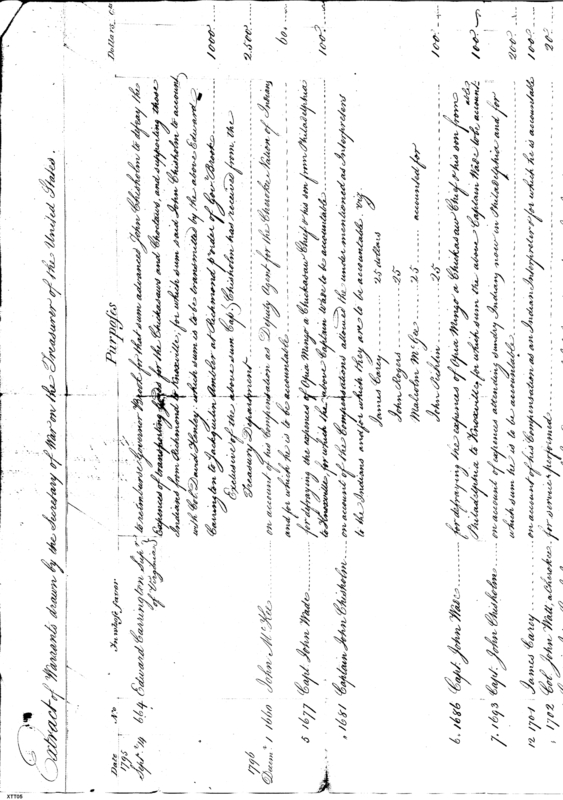 Extract of Warrants drawn by the Secretary of War on the Treasurer of the United States.
Date No In whose favor Purposes Dollars Cts
1795
Sept. 14 664 Edward Carrington Sup.r to reimburse Governor Brook for that sum advanced John Chisholm to defray the
of Virginia Expences of transporting goods for the Chickasaws and Choctaws, and supporting those
Indians from Richmond to Knoxville, for which sum said John Chisholm to account
with Col. David Henley. which sum is to be transmitted by the above Edward
Carrington to Jacquelin Ambler at Richmond p order of Gov. Brook 1000
Exclusive of the above sum Cap. Chisholm has received from the
Treasury Department 2500
1796
1 1660 John McKee on account of his Compensation as Deputy Agent for the Cherokee Nation of Indians
and for which he is to be accountable 60.
5 1677 Capt. John Wade for defraying the expences of Opia Mingo a Chickasaw Chief & his son from Philadelphia
to Knoxville, for which the above Captain Wade to be accountable 100.
1681 Captain John Chisholm on account of the Compensations allowed the under mentioned as Interpreters
to the Indians and for which they are to be accountable viz
James Carey 25 dollars
John Rogers 25
Malcolm McGee 25 accounted for
John 25 100
6. 1686 Capt. John Wade for defraying the expences of Opia Mingo a Chickasaw Chief & his son from
Philadelphia to Knoxville for which sum the above Captain Wade to be accountable 100
7. 1693 Capt. John Chisholm on account of expences attending sundry Indians now in Philadelphia and for
which sum he is to be accountable 200
12 1701 James Carey on account of his Compensation as an Indian Interpreter & for which he is accountable 100
1702 Col. John Watts, a Cherokee for service performed 20
XTT05